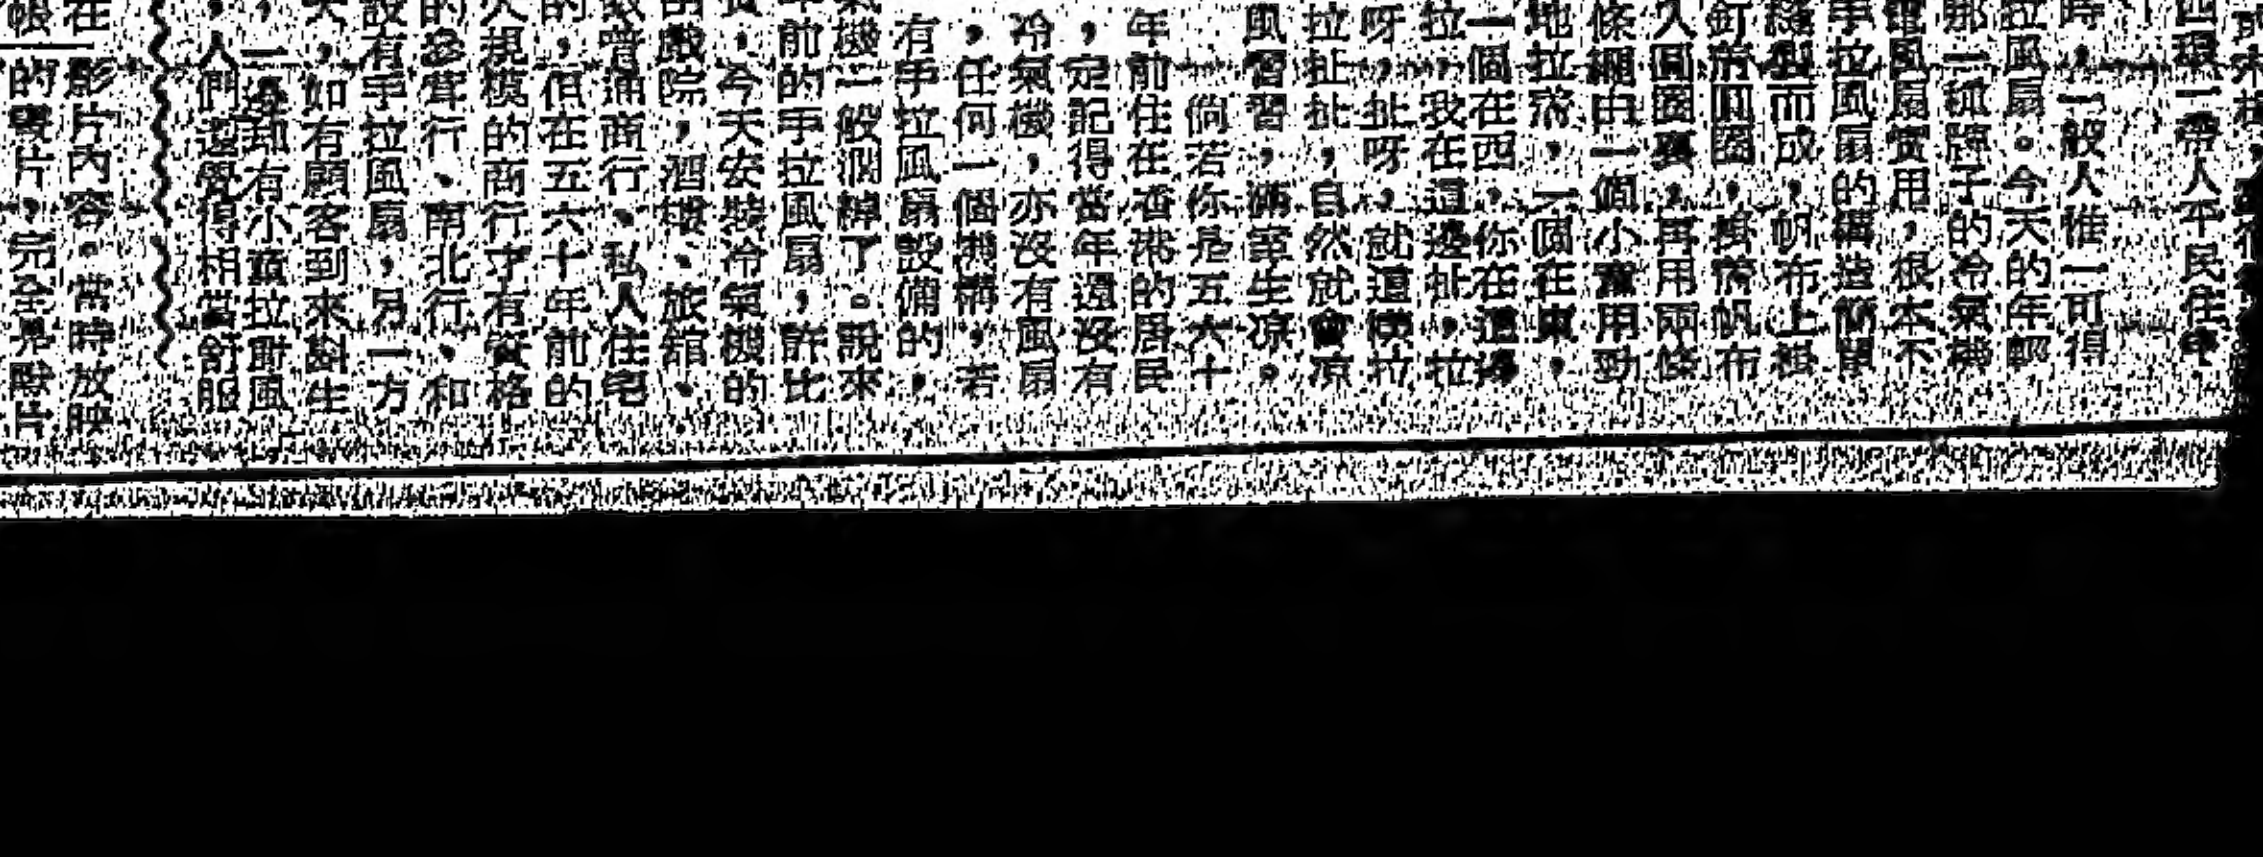 四環一帶人平民住宅
時，一般人惟一可得
拉風扇。今天的年輕
那一種牌子的冷氣機
電風扇實用，根本不
手拉風扇的構造簡單
縫製而成，帆布上掛
釘着圓圈，摺着帆布
入圓圈裏，再用兩條
條繩由一個小童用勁
地拉落，一個在東，
一個在西，你在這邊
拉，我在這邊扯，拉
呀，扯呀，就這樣拉
拉扯扯，自然就會凉
風習習，滿室生凉。
倘若你是五六十
年前住在香港的居民
，定記得當年還沒有
冷氣機，亦沒有風扇
，任何一個店舖，若
有手拉風扇設備的，
氣機一般濶綽了。說來
年前的手拉風扇，許比
貴，今天安裝冷氣機的
的戲院，酒樓、旅館、
般普通商行、私人住宅
的，但在五六十年前的
大規模的商行才有資格
的參茸行、南北行、和
設有手拉風扇，另一方
天，如有顧客到來斟生
，一邊却有小童拉動風
，人們還覺得相當舒服
在 影片內容。常時放映
的響片，完全是默片